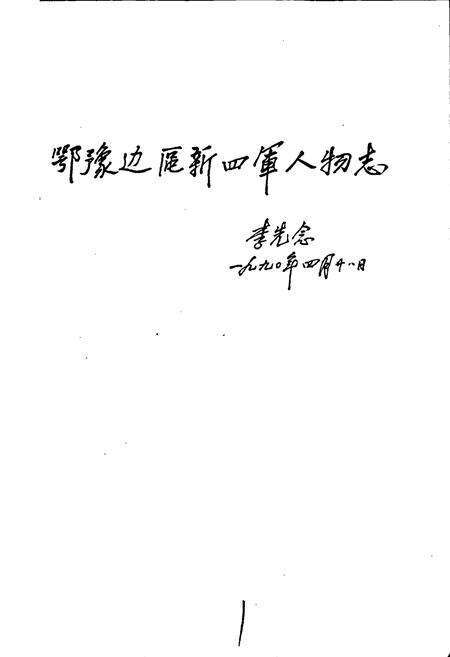 鄂豫边区新四軍人物志
李先念
一九九〇年四月十八日